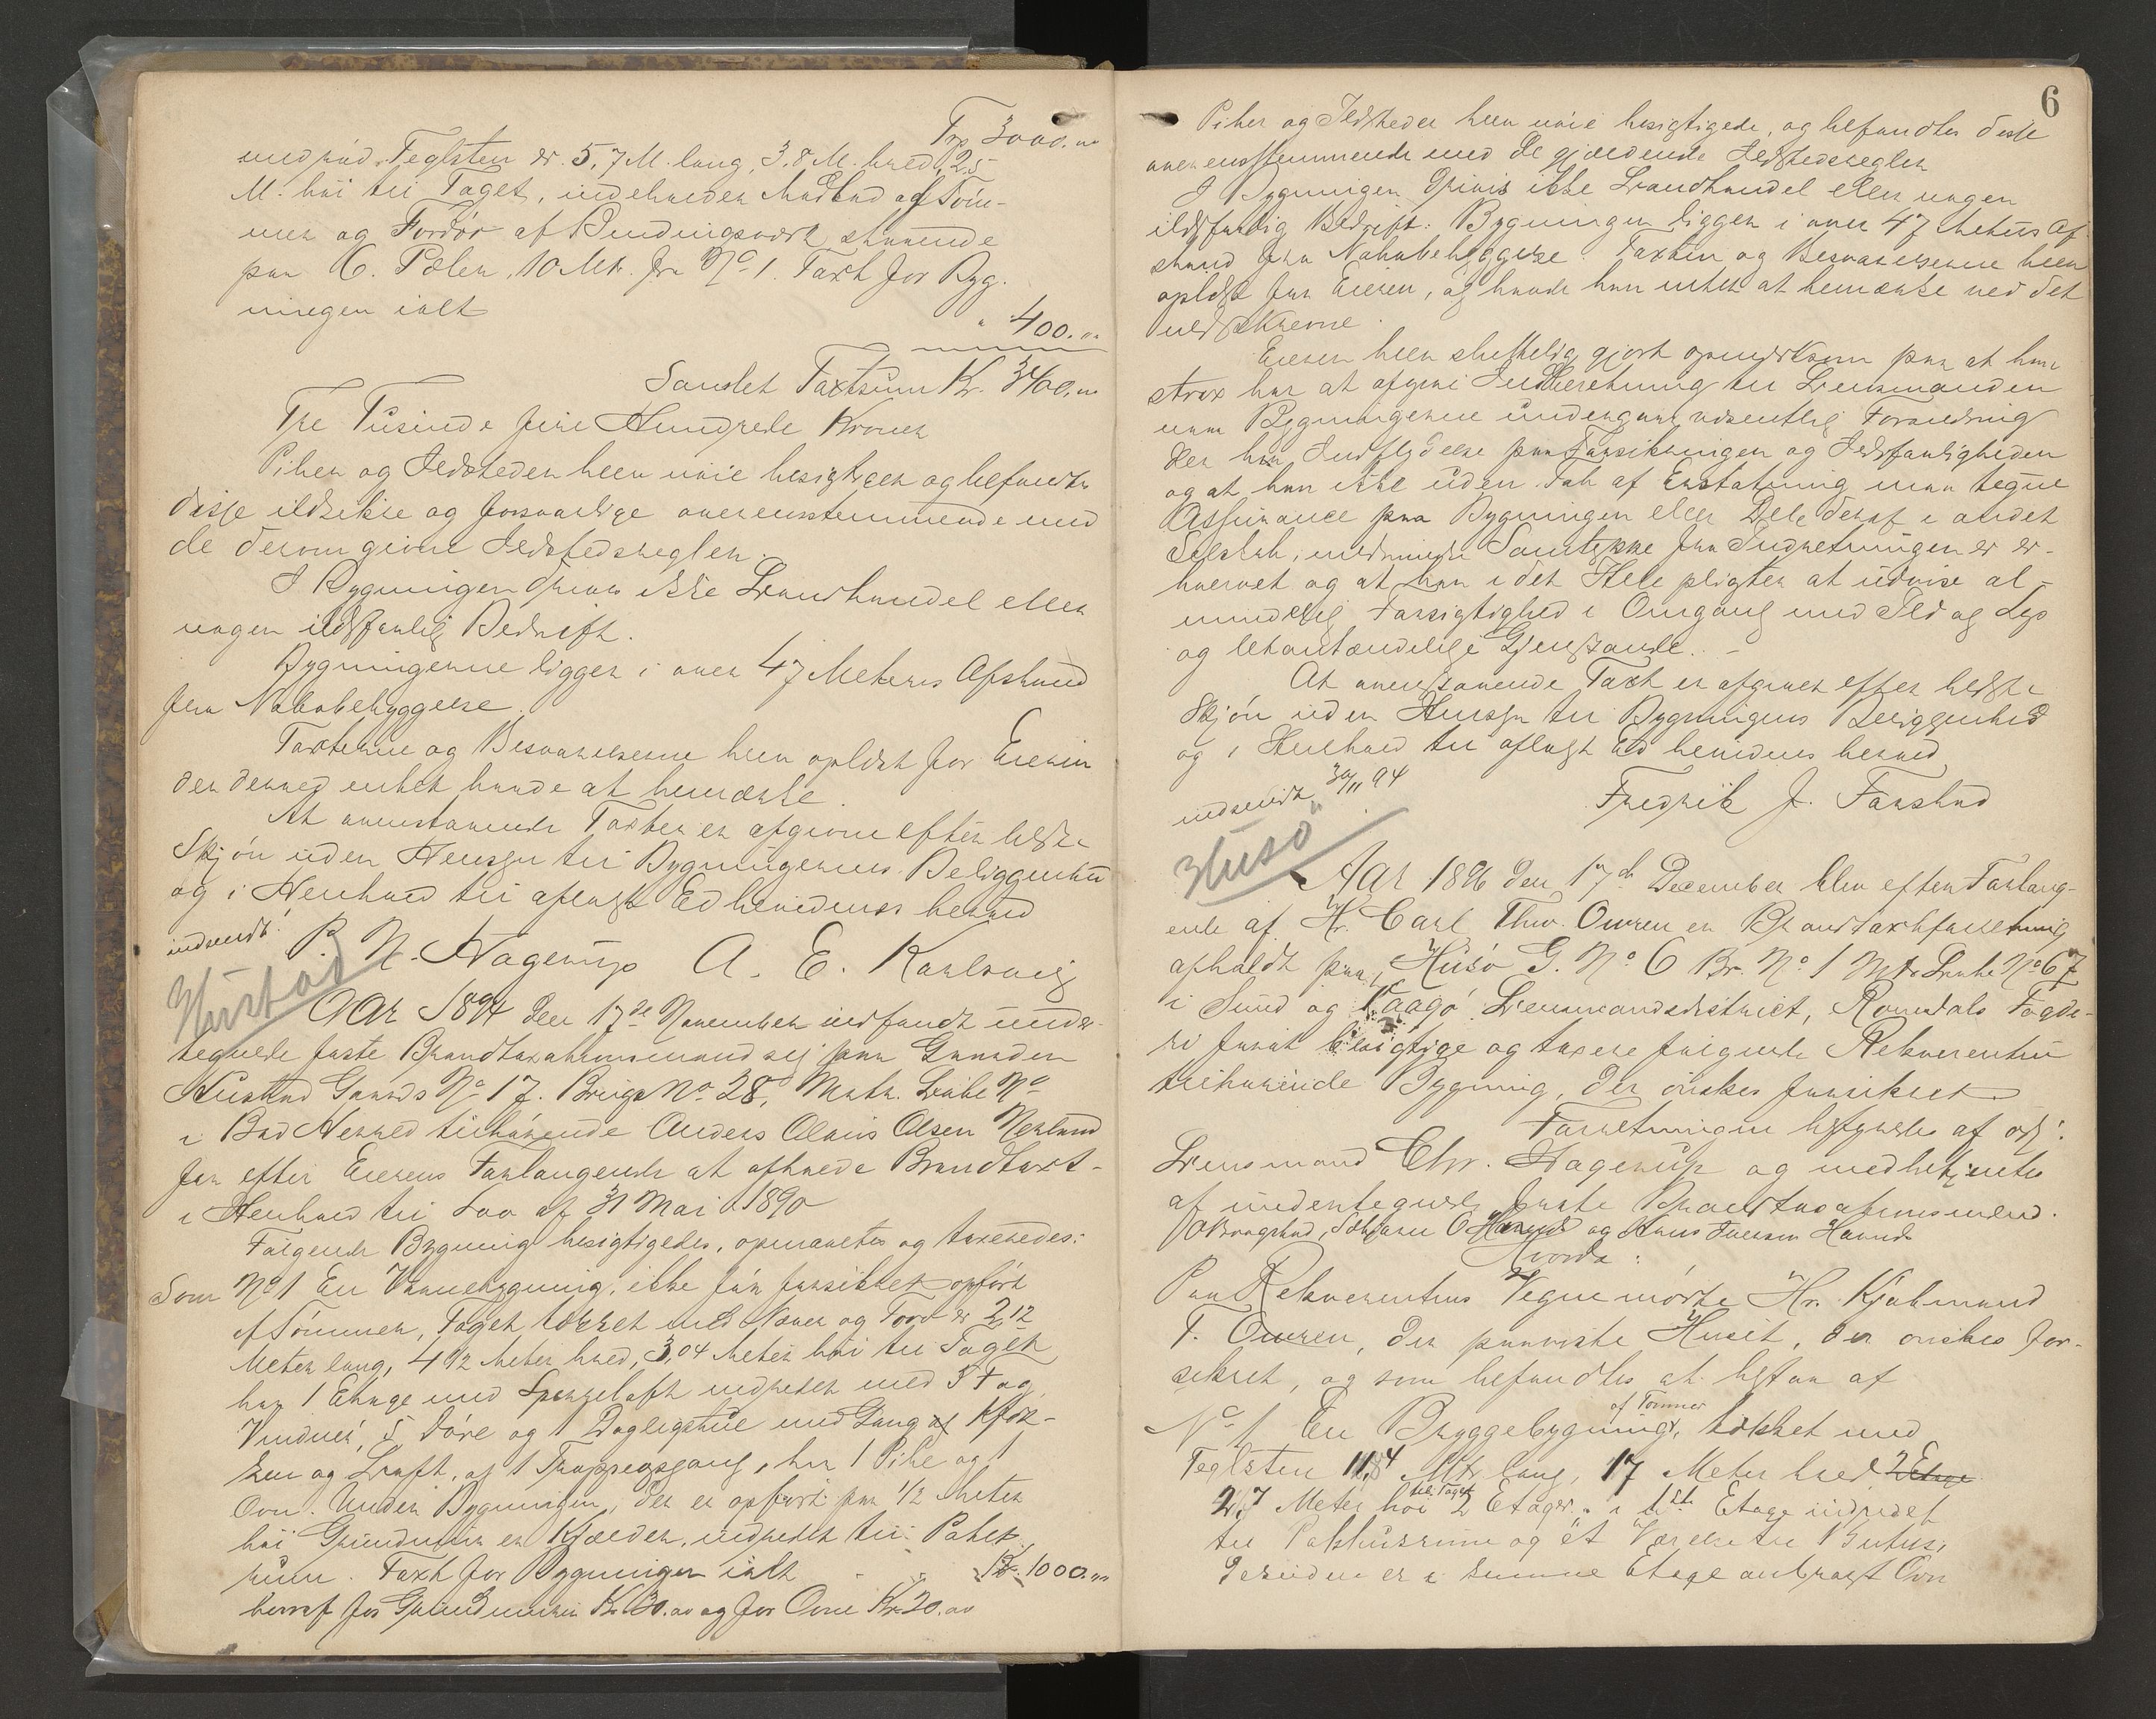 Trp. 3000.00
med rød Teglsten er 5,7 M. lang, 3,8 M. bred, 2,5
M. høi til Taget, indeholder Madbod af Tøm-
mer og Fordør af Bindingsværk staaende
paa 6. Pæler, 10 Mtr. fra No 1. Taxt for Byg-
ningen ialt
" 400.00
Samlet Taxtsum Kr. 3400.00
Tre Tusinde fire Hundrede Kroner
Piber og Ildsteder blev nøie besigtiget og befandtes
disse ildsikre og forsvarlige overensstemmende med
de derom givne Ildstedsregler.
I Bygningen drives ikke Landhandel eller
nogen ildsfarlig Bedrift.
Bygningerne ligger i over 47 Meters Afstand
fra Nabobebyggelse.
Taxterne og Besvarelserne blev oplæst for Eieren
der dermed intet havde at bemærke.
At ovenstaaende Taxter er afgivne efter bedste
Skjøn uden Hensyn til Bygningernes Beliggenhed
og i Henhold til aflagt Ed bevidnes herved
indsendt. P. N. Hagerup A. E. Karlsvig
Hustad
Aar 1894 den 17de November indfandt under-
tegnede faste Brandtaxationsmænd sig paa Gaarden
Hustad Gaards No 17. Brugs No 28, Matr. Løbe No
i Bud Herred tilhørende Anders Olaus Olsen Nerland
for efter Eierens Forlangende at afholde Brandtaxt
i Henhold til Lov af 31 Mai 1890
Følgende Bygning besigtigedes, opmaaltes og taxeredes:
Som No 1 En Vaanebygning, ikke før forsikret opført
af Tømmer, Taget tækket med Næver og Torv er 2,12
Meter lang, 4 1/2 Meter bred, 3,04 Meter høi til Taget
har 1 Etage med Sperreloft indredet med 3 Fag
Vinduer, 5 Døre og 1 Dagligstue med Gang og Kjøk-
ken og Loft, af 1 Trappeopgang, har 1 Pibe og 1
Ovn. Under Bygningen, der er opført paa 1/2 Meter
høi Grundmur er Kjælder, indredet til Potet-
rum. Taxt for Bygningen ialt Kr. 1000.00
heraf for Grundmuren Kr. 30.00 og for Ovne Kr. 20.00
6
Piber og Ildsteder blev nøie besigtigede, og befandtes disse
overensstemmende med de gjældende Ildstedsregler
I Bygningen drives ikke Landhandel eller nogen
ildsfarlig Bedrift. Bygningen ligger i over 47 Meters Af-
stand fra Nabobebyggelse. Taxten og Besvarelserne blev
oplæst for Eieren, og havde han intet at bemærke ved det
nedskrevne.
Eieren blev skriftlig gjort opmærksom paa at han
strax har at afgive Indberetning til Lensmanden
naar Bygningerne undergaar væsentlig Forandring
der har Indflydelse paa Forsikringen og Ildsfarligheden
og at han ikke uden Tab af Erstatning maa tegne
Assurance paa Bygningen eller Dele deraf i andet
Selskab, medmindre Samtykke fra Indretningen er er-
hvervet og at han i det Hele pligter at udvise al-
mindelig Forsigtighed i Omgang med Ild og Lys
og letantændelige Gjenstande. -
At ovenstaaende Taxt er afgivet efter bedste
Skjøn uden Hensyn til Bygningens Beliggenhed
og i Henhold til aflagt Ed bevidnes herved
indsendt 30/11 94
Fredrik J. Farstad
Husø
Aar 1896 den 17de December blev efter Forlang-
ende af Hr. Carl Thw. Owren en Brandtaxtforretning
afholdt paa Husø G. No 6 Br. No 1 Mtr Løbe No 67
i Sund og Vaagø Lensmandsdistrict, Romsdals Fogde-
ri forat besigtige og taxere følgende Rekvirenten
tilhørende Bygning, der ønskes forsikret.
Forretningen bestyrtes af const.
Lensmand Chr. Hagerup og medbetjentes
af undertegnede faste Brandtaxationsmænd.
O Vaagsbø, Johan O. Havnes og Hans Iversen Havnes
Hvorda:
Paa Rekvirentens Vegne mødte Hr. Kjøbmand
T. Owren, der paaviste Huset, der ønskes for-
sikret, og som befandtes at bestaa af
No 1 En Bryggebygning, af Tømmer tækket med
Teglsten 11,84 Mtr. lang, 17 Meter bred 2 Etage
2,7 Meter høi til Taget 2 Etager. i 1ste Etage indredet
til Pakhusrum og et Værelse til Butik,
desuden er i samme Etage anbragt Ovn